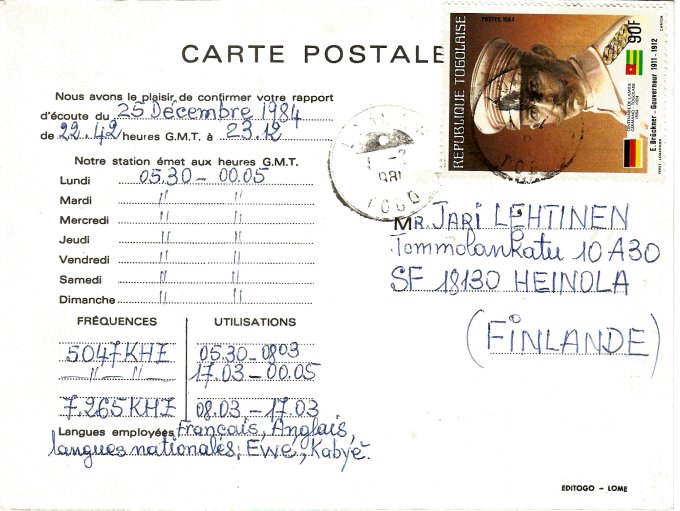 CARTE POSTALE
Nous avons le plaisir de confirmer votre rapport
d'écoute du 25 Décembre 1984
de 22.42 heures G.M.T. à 23.12
Notre station émet aux heures G.M.T.
Lundi 05.30 – 00.05
Mardi " "
Mercredi " "
Jeudi " "
Vendredi " "
Samedi " "
Dimanche " "
FRÉQUENCES UTILISATIONS
5047KHZ 05.30 – 0803
— " — " 17.03 – 00.05
7.265KHZ 08.03 – 17.03
Langues employées Français, Anglais,
langues nationales: Ewe, Kabyè.
POSTES 1984
REPUBLIQUE TOGOLAISE
90F
E. Brückner - Gouverneur 1911 - 1912
CENTENAIRE DE L'AMITIE
GERMANO - TOGOLAISE
1884 1984
CARTOR
TOGO
Mr. JARI LEHTINEN
Tommolankatu 10 A30
SF 18130 HEINOLA
(FINLANDE)
EDITOGO – LOME